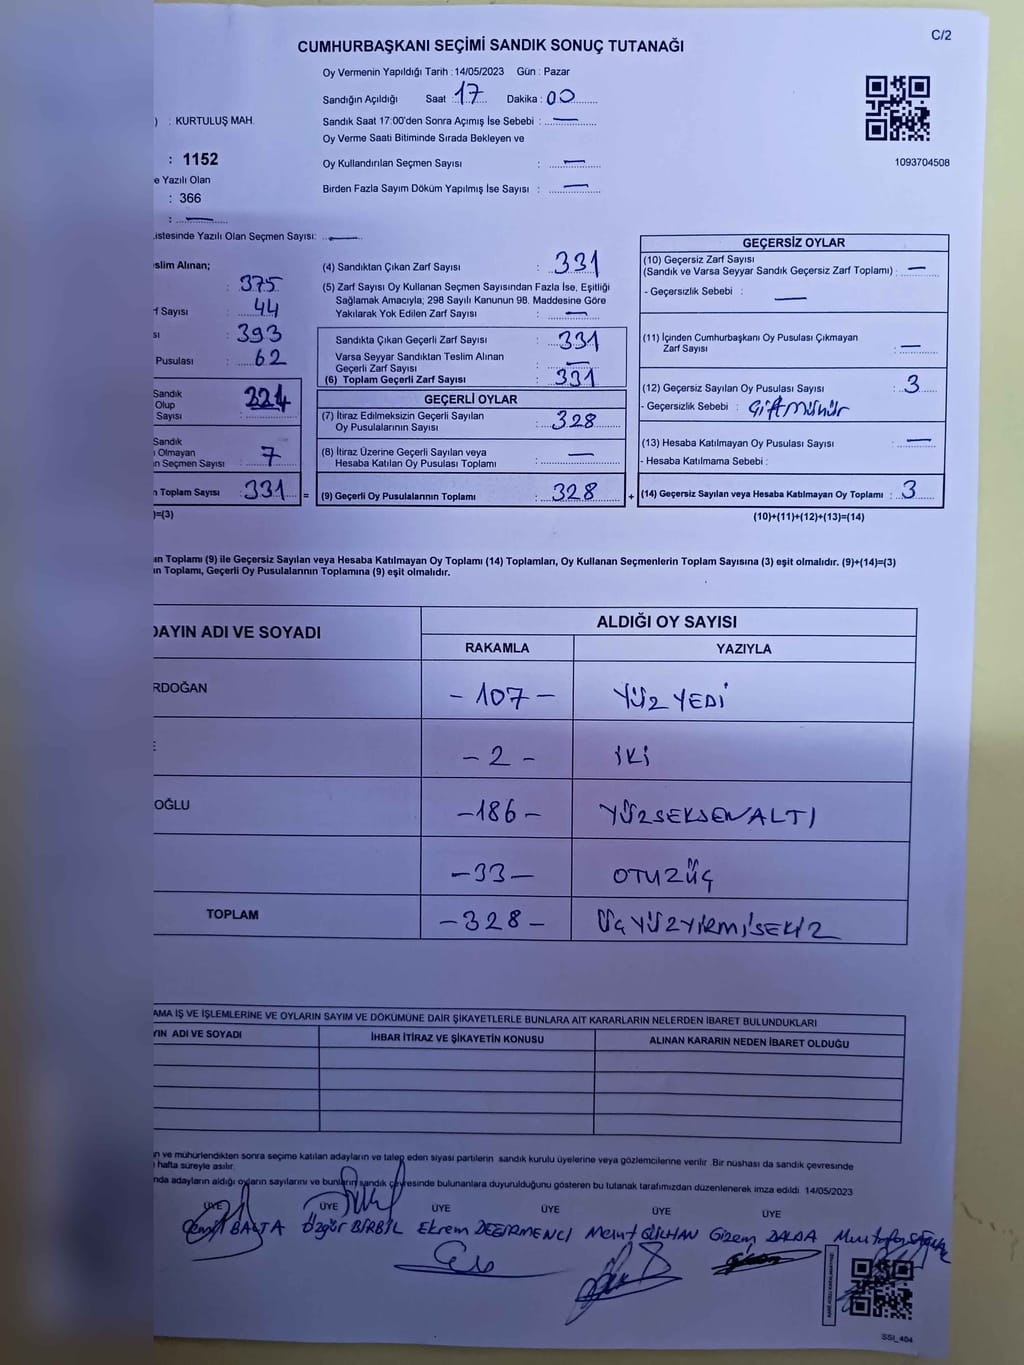 C/2
CUMHURBAŞKANI SEÇİMİ SANDIK SONUÇ TUTANAĞI
Oy Vermenin Yapıldığı Tarih : 14/05/2023 Gün : Pazar
Sandığın Açıldığı Saat : 17 Dakika : 00
) : KURTULUŞ MAH.
Sandık Saat 17:00'den Sonra Açımış İse Sebebi : —
Oy Verme Saati Bitiminde Sırada Bekleyen ve
Oy Kullandırılan Seçmen Sayısı : —
: 1152
e Yazılı Olan
: 366
Birden Fazla Sayım Döküm Yapılmış İse Sayısı : —
: —
1093704508
istesinde Yazılı Olan Seçmen Sayısı: —
slim Alınan;
: 375
f Sayısı : 44
sı : 393
Pusulası : 62
Sandık
Olup
Sayısı : 324
Sandık
Olmayan
n Seçmen Sayısı : 7
n Toplam Sayısı : 331 =
)=(3)
(4) Sandıktan Çıkan Zarf Sayısı : 331
(5) Zarf Sayısı Oy Kullanan Seçmen Sayısından Fazla İse, Eşitliği
Sağlamak Amacıyla; 298 Sayılı Kanunun 98. Maddesine Göre
Yakılarak Yok Edilen Zarf Sayısı : —
Sandıkta Çıkan Geçerli Zarf Sayısı : 331
Varsa Seyyar Sandıktan Teslim Alınan
Geçerli Zarf Sayısı : —
(6) Toplam Geçerli Zarf Sayısı : 331
GEÇERLİ OYLAR
(7) İtiraz Edilmeksizin Geçerli Sayılan
Oy Pusulalarının Sayısı : 328
(8) İtiraz Üzerine Geçerli Sayılan veya
Hesaba Katılan Oy Pusulası Toplamı : —
(9) Geçerli Oy Pusulalarının Toplamı : 328 +
GEÇERSİZ OYLAR
(10) Geçersiz Zarf Sayısı
(Sandık ve Varsa Seyyar Sandık Geçersiz Zarf Toplamı) : —
- Geçersizlik Sebebi : —
(11) İçinden Cumhurbaşkanı Oy Pusulası Çıkmayan
Zarf Sayısı : —
(12) Geçersiz Sayılan Oy Pusulası Sayısı : 3
- Geçersizlik Sebebi : Çift mühür
(13) Hesaba Katılmayan Oy Pusulası Sayısı : —
- Hesaba Katılmama Sebebi :
(14) Geçersiz Sayılan veya Hesaba Katılmayan Oy Toplamı : 3
(10)+(11)+(12)+(13)=(14)
ın Toplamı (9) ile Geçersiz Sayılan veya Hesaba Katılmayan Oy Toplamı (14) Toplamları, Oy Kullanan Seçmenlerin Toplam Sayısına (3) eşit olmalıdır. (9)+(14)=(3)
ın Toplamı, Geçerli Oy Pusulalarının Toplamına (9) eşit olmalıdır.
DAYIN ADI VE SOYADI
ALDIĞI OY SAYISI
RAKAMLA YAZIYLA
RDOĞAN - 107 - YÜZ YEDİ
E - 2 - İKİ
OĞLU - 186 - YÜZSEKSENALTI
- 33 - OTUZÜÇ
TOPLAM - 328 - ÜÇ YÜZYİRMİSEKİZ
AMA İŞ VE İŞLEMLERİNE VE OYLARIN SAYIM VE DÖKÜMÜNE DAİR ŞİKAYETLERLE BUNLARA AİT KARARLARIN NELERDEN İBARET BULUNDUKLARI
YIN ADI VE SOYADI İHBAR İTİRAZ VE ŞİKAYETİN KONUSU ALINAN KARARIN NEDEN İBARET OLDUĞU
n ve mühürlendikten sonra seçime katılan adayların ve talep eden siyasi partilerin sandık kurulu üyelerine veya gözlemcilerine verilir. Bir nüshası da sandık çevresinde
hafta süreyle asılır.
nda adayların aldığı oyların sayılarını ve bunların sandık çevresinde bulunanlara duyurulduğunu gösteren bu tutanak tarafımızdan düzenlenerek imza edildi. 14/05/2023
ÜYE ÜYE ÜYE ÜYE ÜYE ÜYE
Cemil BALTA Özgür BİRBİL Ekrem DEĞİRMENCİ Mesut GÜLHAN Gizem DALDA Mustafa
SSİ_404